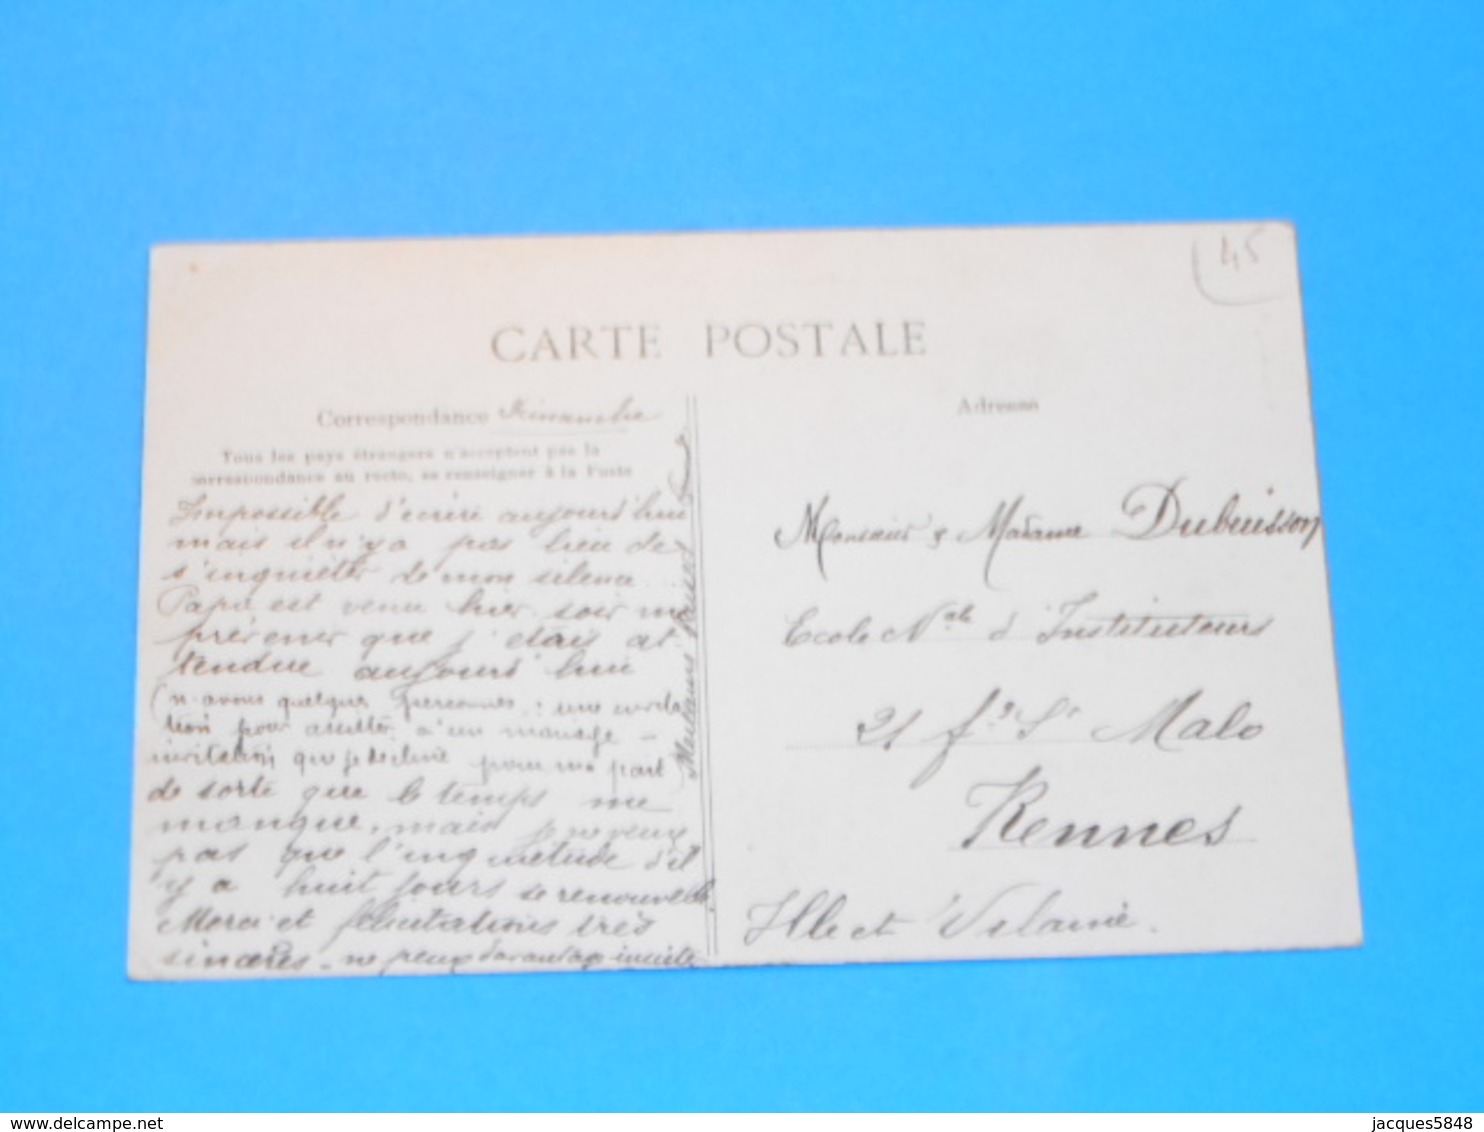 45
CARTE POSTALE
Correspondance Dimanche
Adresse
Tous les pays étrangers n'acceptent pas la
correspondance au recto, se renseigner à la Poste
Impossible d'écrire aujourd'hui
mais il n'y a pas lieu de
s'inquiéter de mon silence...
Papa est venu hier soir me
prévenir que j'étais at
tendue aujourd'hui
(n. avons quelques personnes : une invita
tion pour assister à un mariage -
invitation que je décline pour ma part)
de sorte que le temps me
manque, mais je ne veux
pas que l'inquiétude d'il
y a huit jours se renouvelle.
Merci et félicitations très
sincères - ne peux davantage
Meilleurs baisers
Monsieur & Madame Dubuisson
Ecole Nale d'Instituteurs
21 fg St Malo
Rennes
Ille et Vilaine.
jacques5848